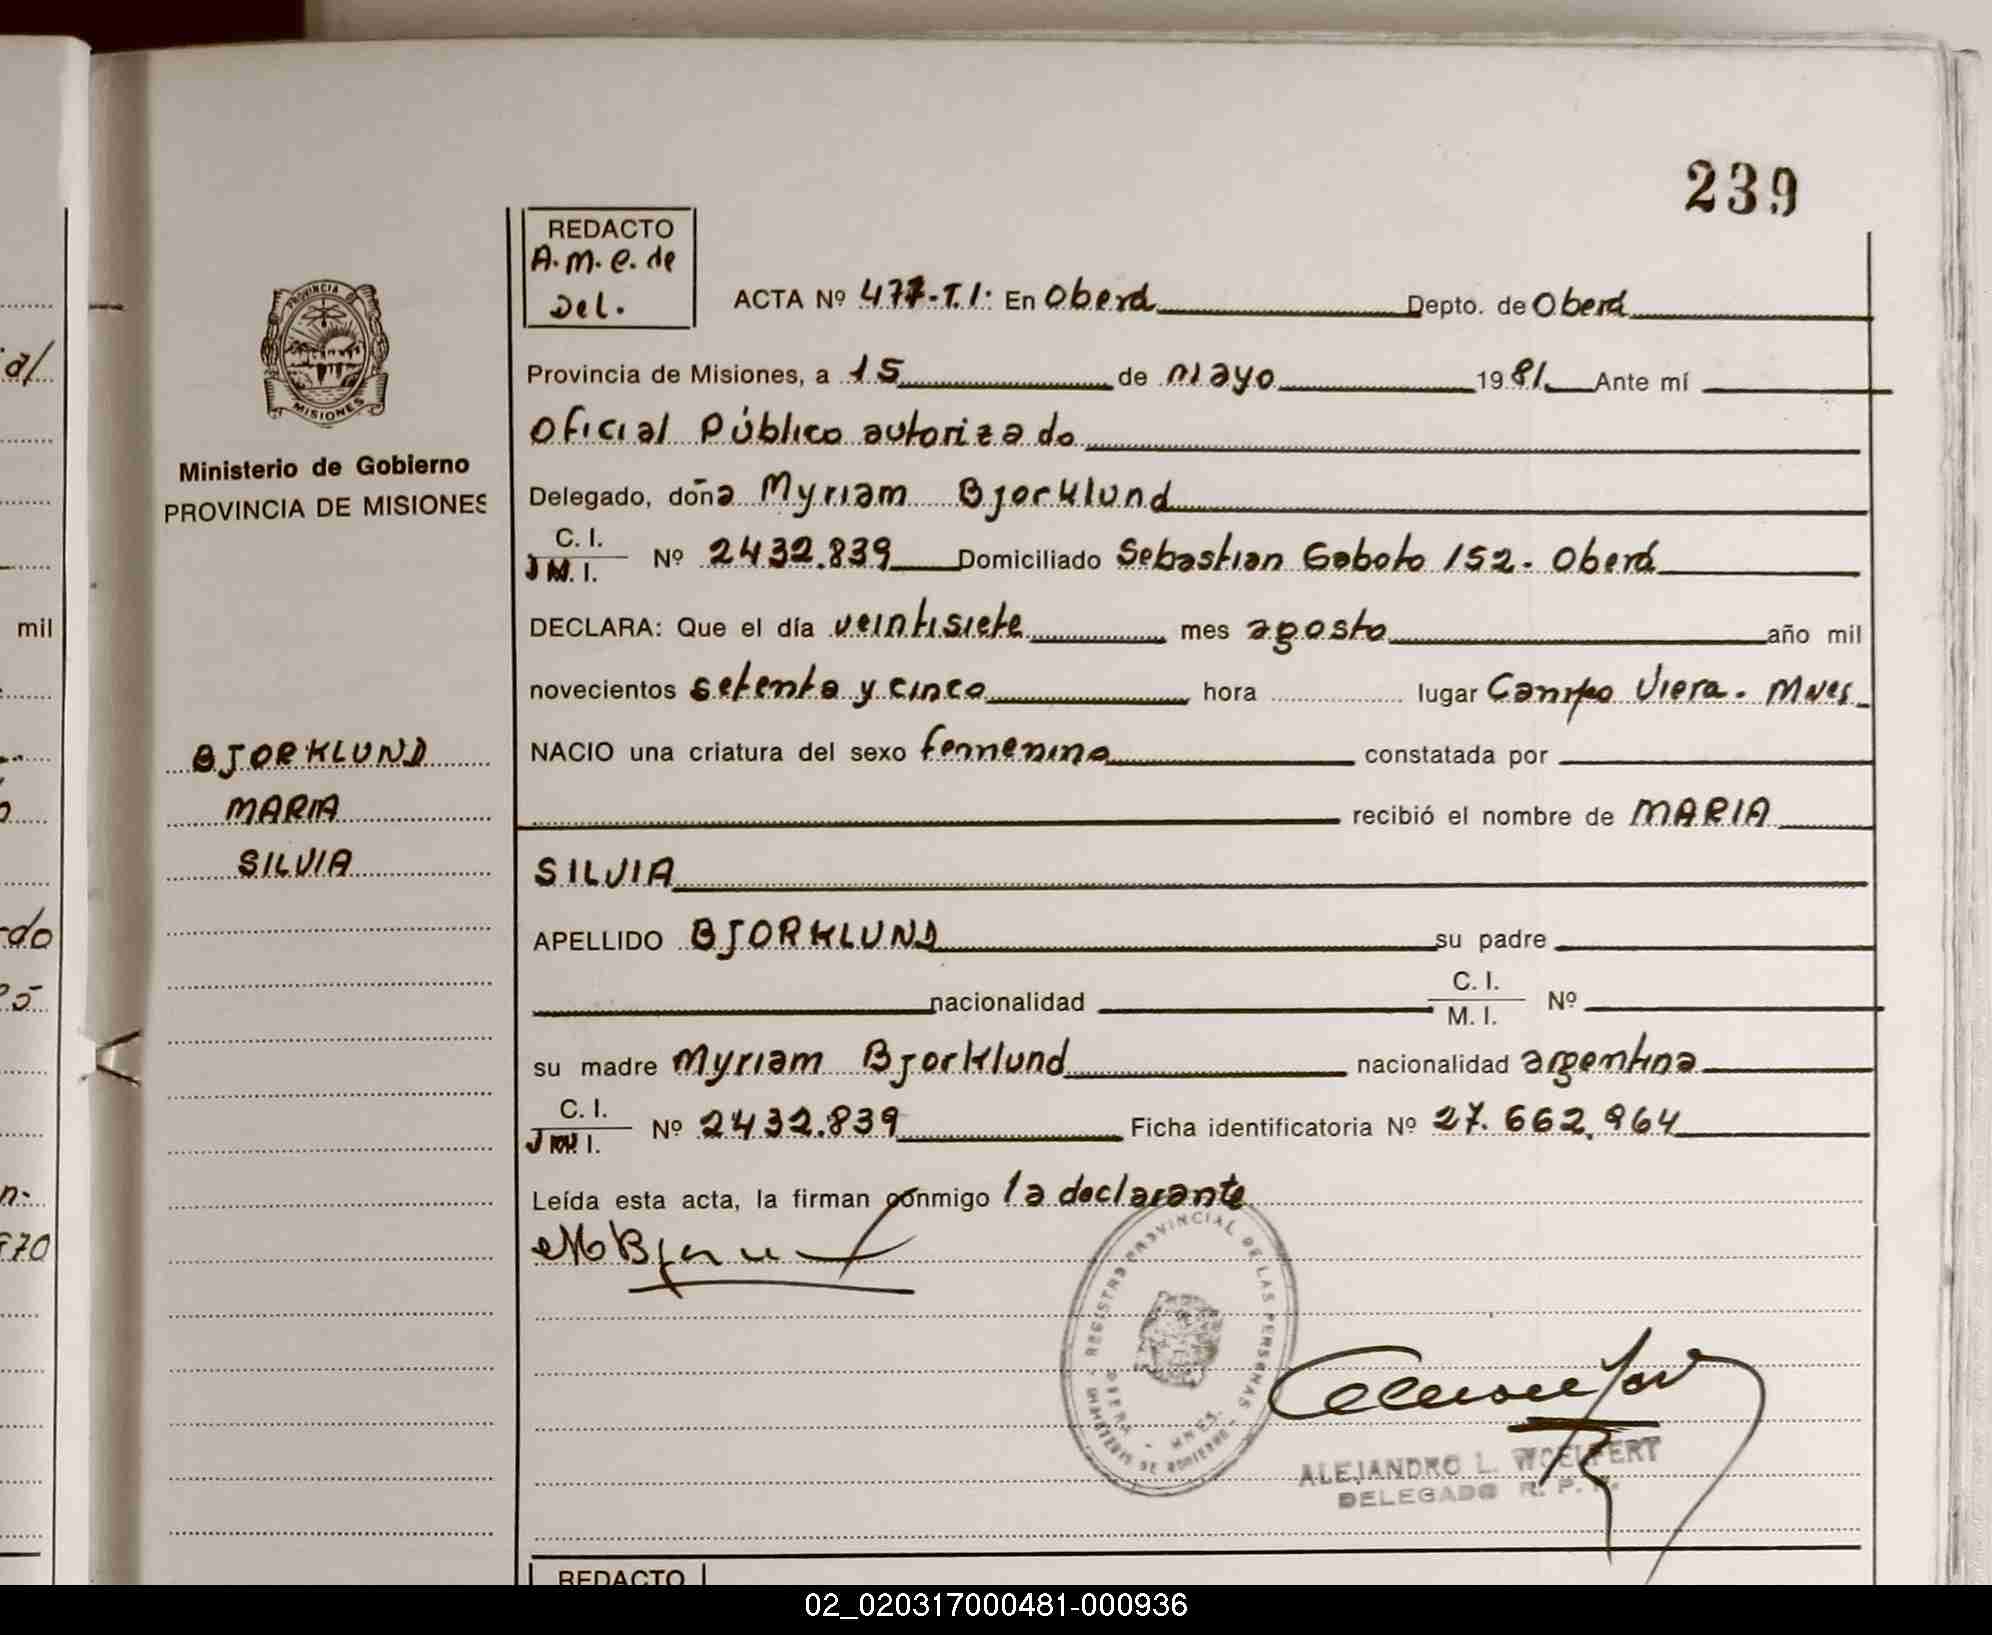 239
REDACTO
A.M.E. de
Del.
ACTA Nº 477-T.I. En Oberá Depto. de Oberá
Provincia de Misiones, a 15 de mayo 1981 Ante mí
Oficial Público autorizado
Delegado, doña Myriam Bjorklund
C. I.
M. I. Nº 2432.839 Domiciliado Sebastian Gaboto 152. Oberá
DECLARA: Que el día veintisiete mes agosto año mil
novecientos setenta y cinco hora lugar Campo Viera. Mnes
NACIO una criatura del sexo femenino constatada por
recibió el nombre de MARIA
SILVIA
APELLIDO BJORKLUND su padre
nacionalidad C. I.
M. I. Nº
su madre Myriam Bjorklund nacionalidad argentina
C. I.
M. I. Nº 2432.839 Ficha identificatoria Nº 27.662.964
Leída esta acta, la firman conmigo la declarante
REGISTRO PROVINCIAL DE LAS PERSONAS
OBERA - MNES.
MINISTERIO DE GOBIERNO
ALEJANDRO L. WOELFERT
DELEGADO R. P. P.
REDACTO
PROVINCIA DE
MISIONES
Ministerio de Gobierno
PROVINCIA DE MISIONES
BJORKLUND
MARIA
SILVIA
al
mil
do
5
n.
70
02_020317000481-000936